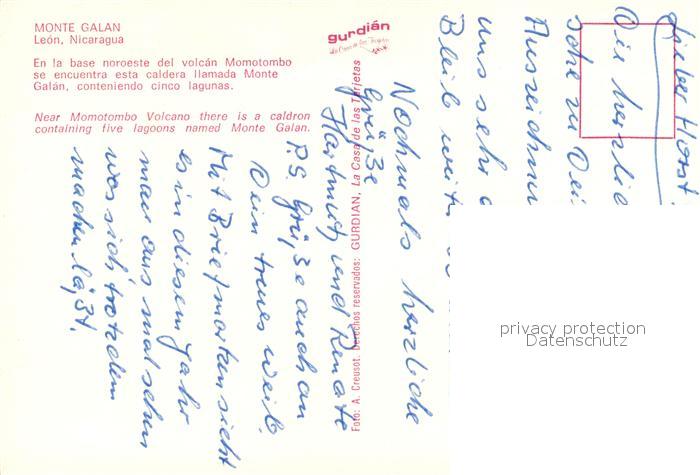 MONTE GALAN
León, Nicaragua
En la base noroeste del volcán Momotombo
se encuentra esta caldera llamada Monte
Galán, conteniendo cinco lagunas.
Near Momotombo Volcano there is a caldron
containing five lagoons named Monte Galan.
gurdián
Foto: A. Creusot. Derechos reservados: GURDIAN, La Casa de las Tarjetas
Lieber Horst
Dir herzlic
sohe zu Dei
Auszeichnu
uns sehr
Bleib weit
Nochmals herzliche
Grüße
Hartmut und Renate
P.S. Grüße auch an
Dein treues Weib.
Mit Briefmarken sieht
es in diesem Jahr
mau aus mal sehen
was sich trotzdem
machen läßt.
privacy protection
Datenschutz